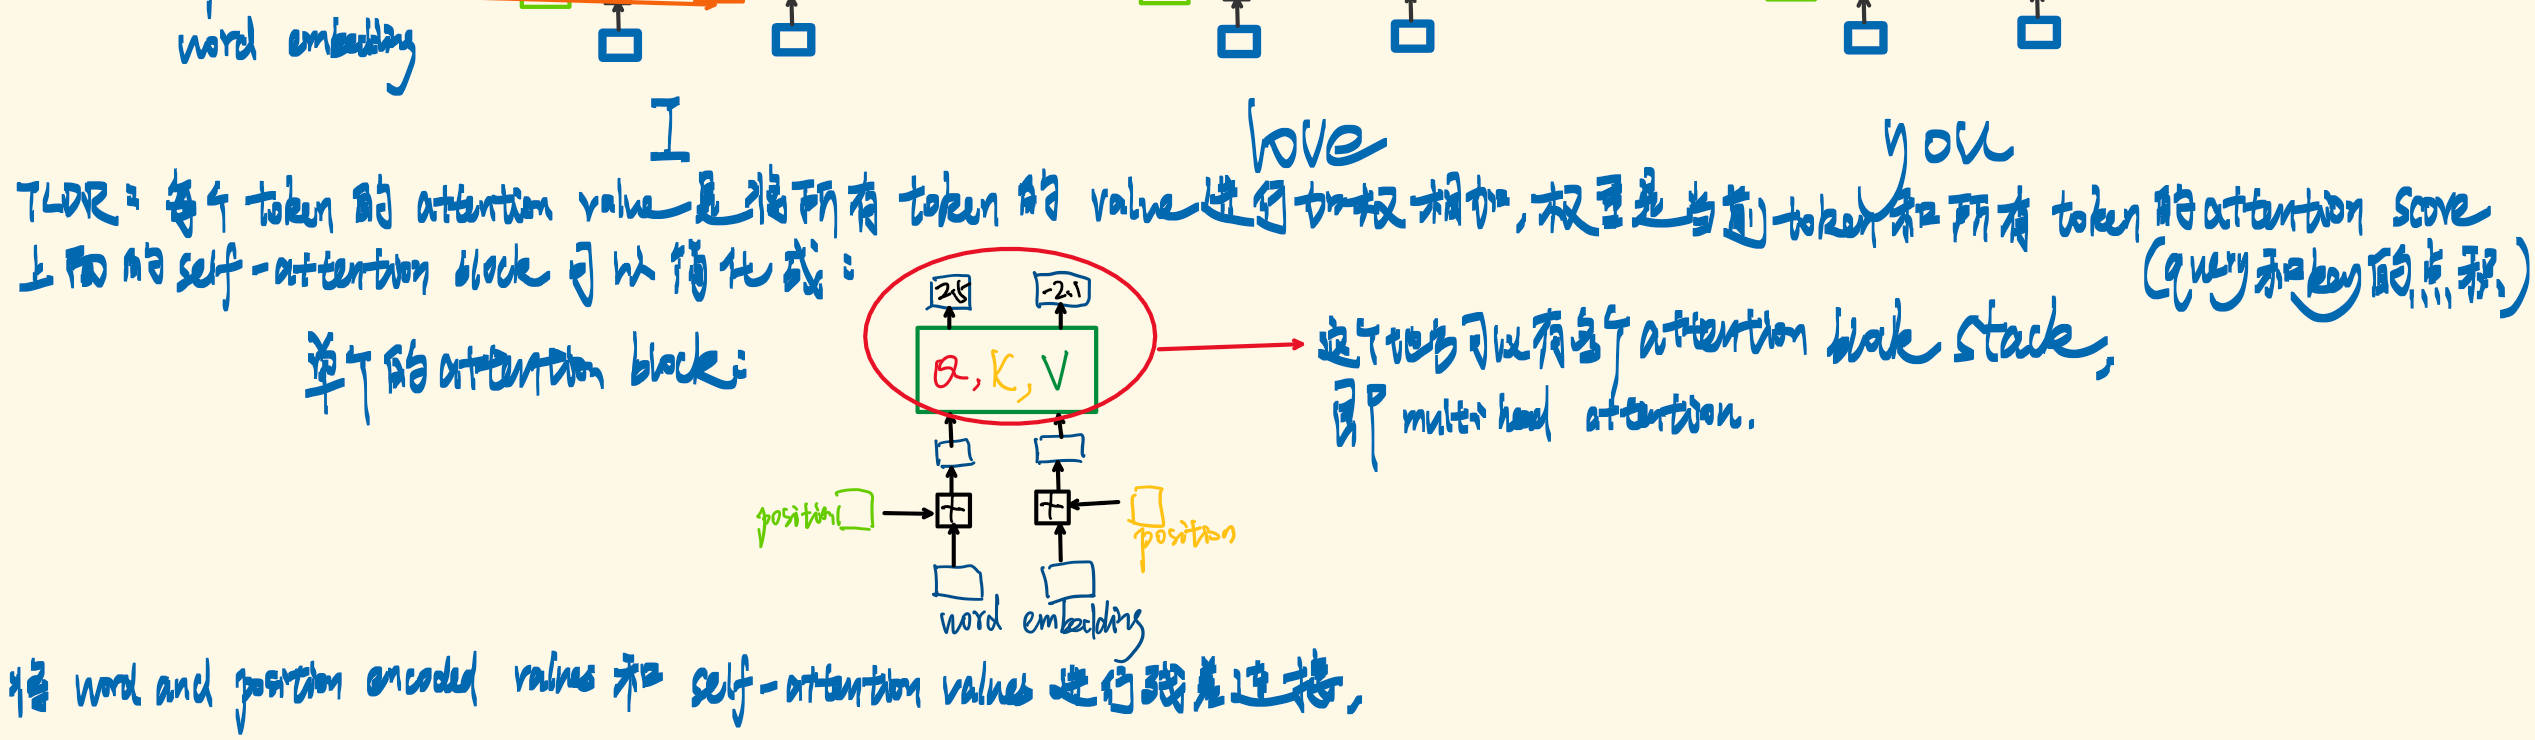 word embedding
I love you
TLDR: 每个 token 的 attention value 是将所有 token 的 value 进行加权相加, 权重是当前 token 和所有 token 的 attention score
(query 和 key 的点积)
上面的 self-attention block 可以简化成:
-2.1
单个的 attention block:
Q, K, V
这个地方可以有多个 attention block stack,
即 multi-head attention.
position
position
word embedding
将 word and position encoded values 和 self-attention values 进行残差连接,